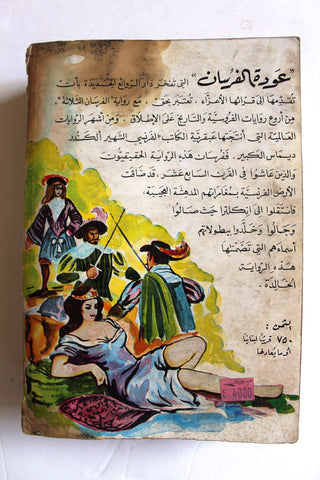 "عودة الفرسان" التي تفتخر دار الروائع الجديدة بأن
تقدمها الى قرائها الأعزاء، تعتبر بحق، مع رواية "الفرسان الثلاثة"
من أروع روايات الفروسية والتاريخ على الاطلاق، ومن أشهر الروايات
العالمية التي أنتجتها عبقرية الكاتب الفرنسي الشهير ألكسندر
ديماس الكبير. ففرسان هذه الرواية الحقيقيون
والذين عاشوا في القرن السابع عشر، قد ضاقت
الأرض الفرنسية بمغامراتهم المدهشة العجيبة
فانتقلوا إلى انكلترا حيث صالوا
وجالوا وخلدوا ببطولاتهم
أسماءهم التي تضمنتها
هذه الرواية
الخالدة.
الثمن:
٧٥٠ قرشاً لبنانياً
أو ما يعادلها
£ 4000